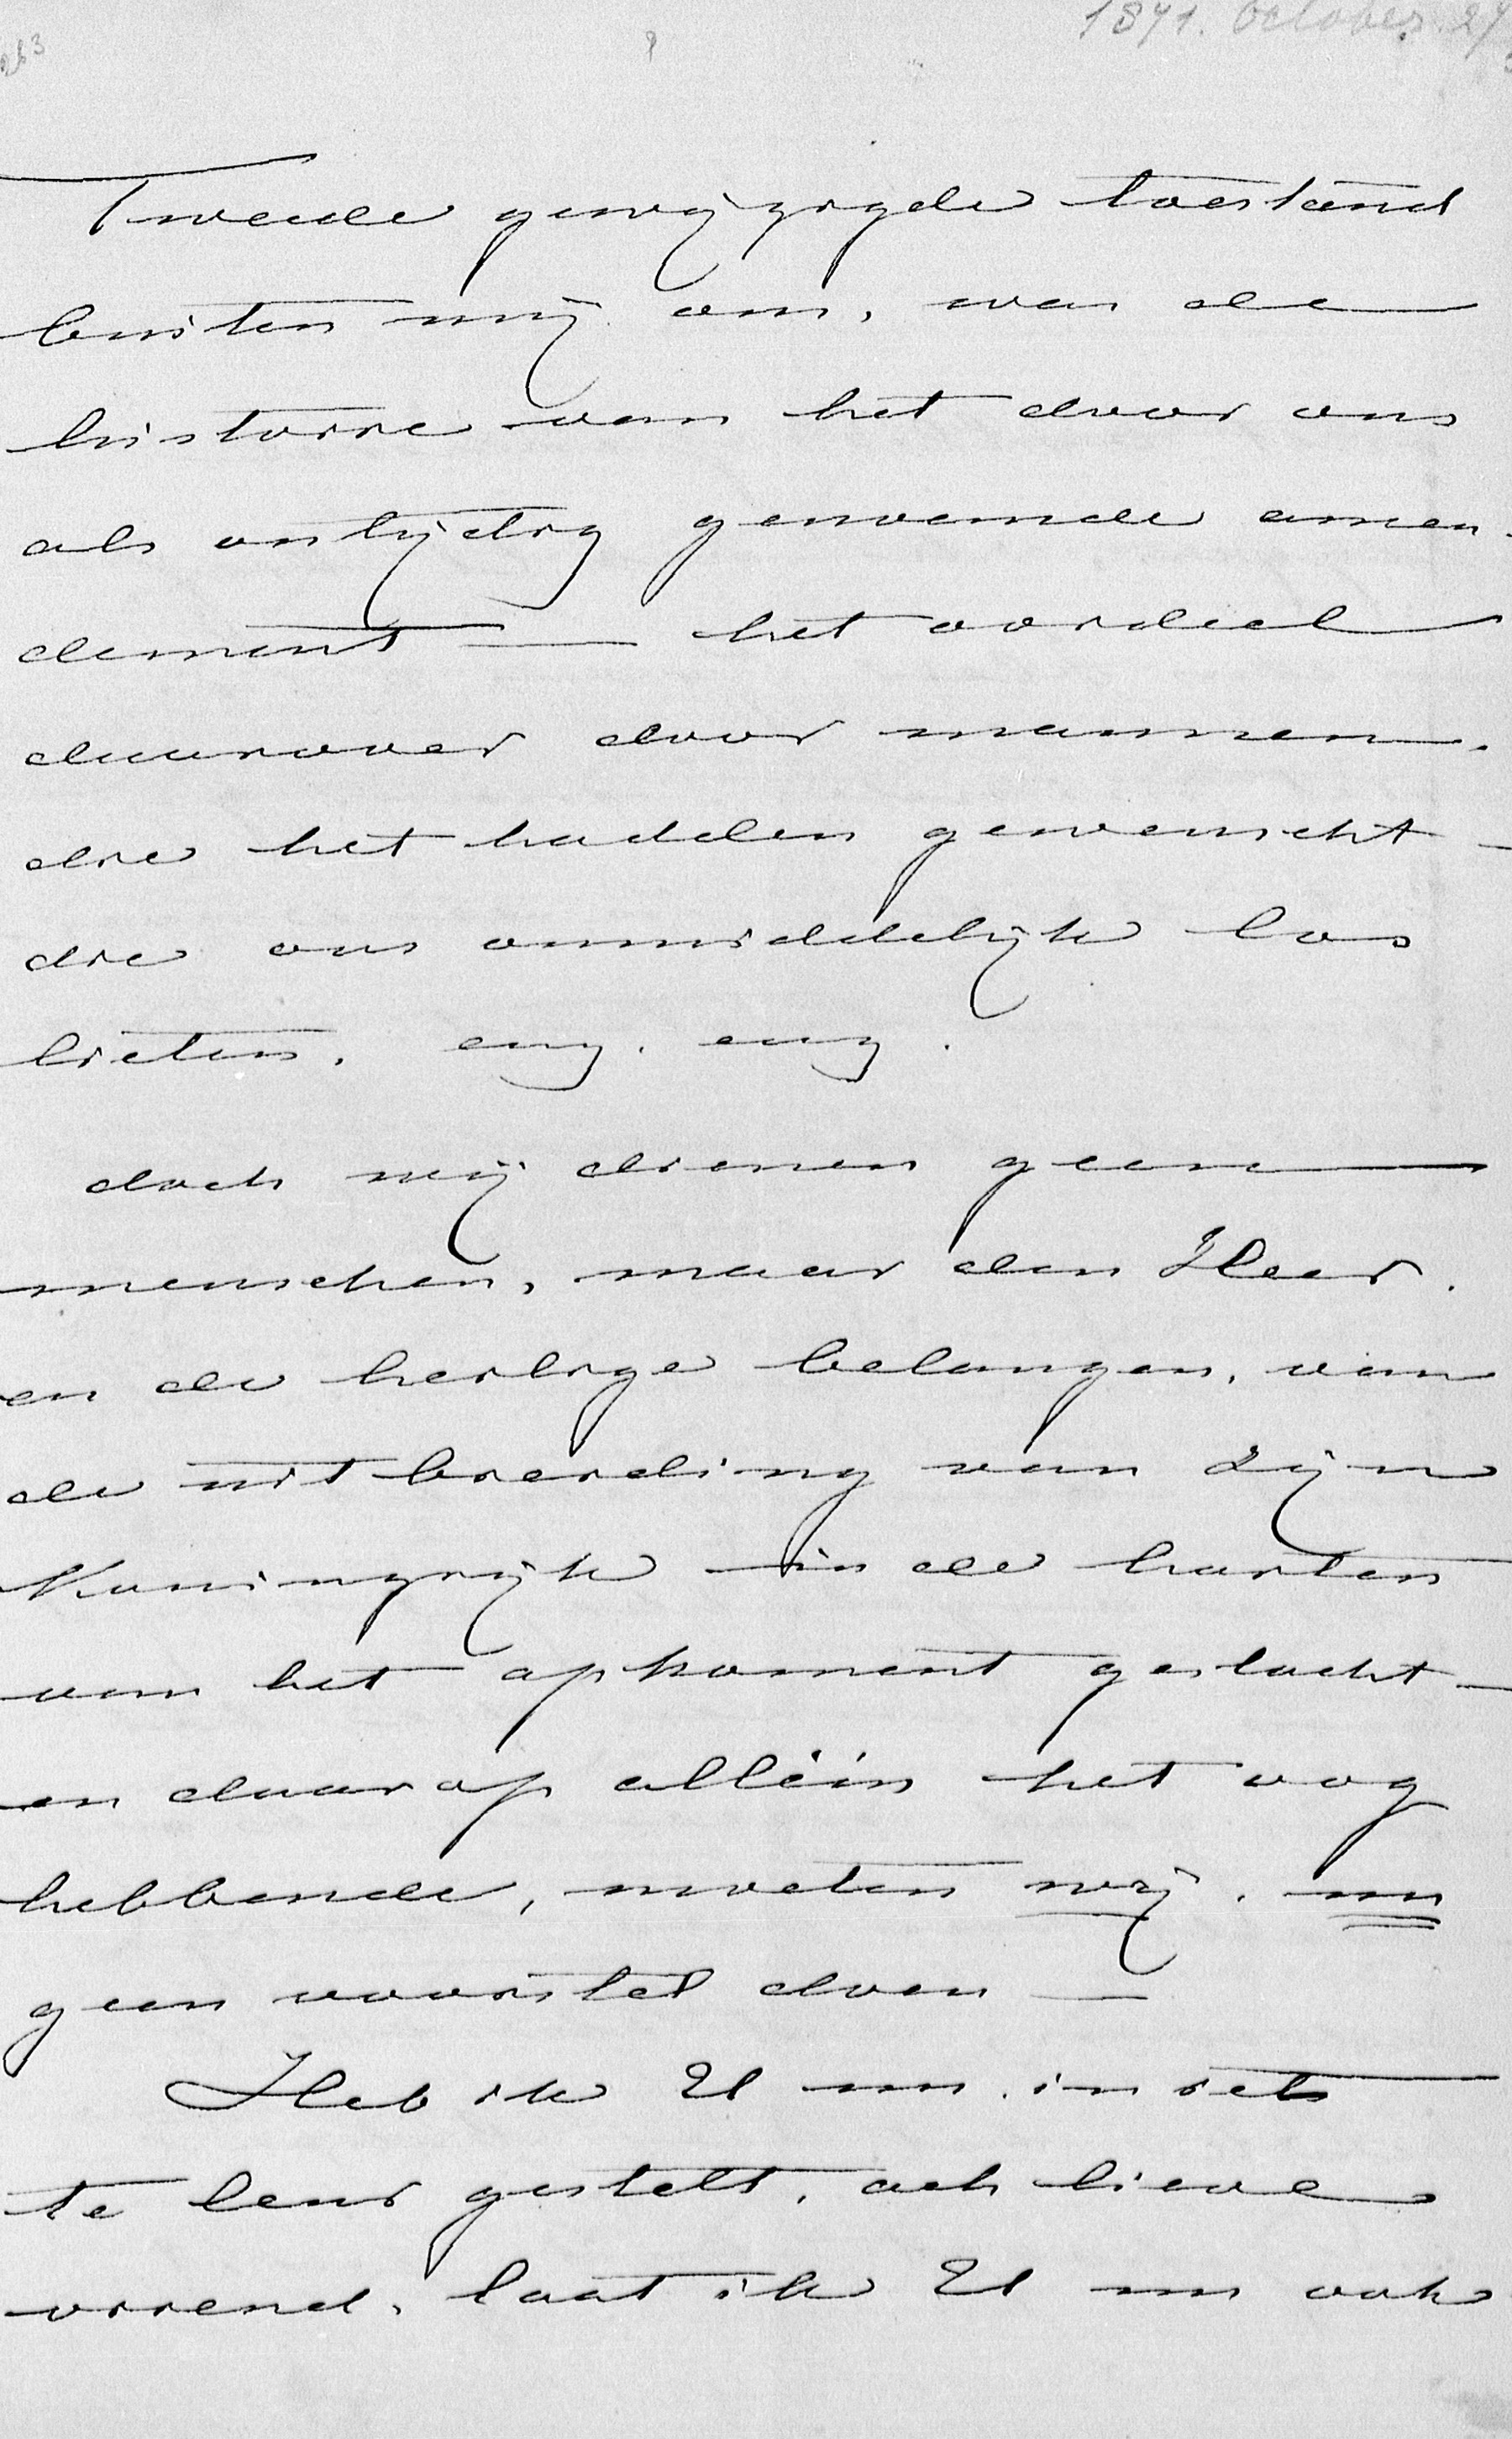 1871. October. 27
Tweede gewyzigde toestand
buiten mij om, was de
historie van het door ons
als ontijdig genoemde amen-
dement — het oordeel
daarover door mannen.
die het hadden gewenscht —
die ons onmiddelijk los
lieten. enz. enz.
doch wij dienen geene
menschen, maar den Heer.
en de heilige belangen, van
de uitbreiding van Zijn
Koningrijk in de harten
van het opkoment geslacht —
en daarop alléén het oog
hebbende, moeten wij. nu
geen voorstel doen —
Heb ik U nu in iets
te leur gestelt, ach lieve
vriend, laat ik U nu ook